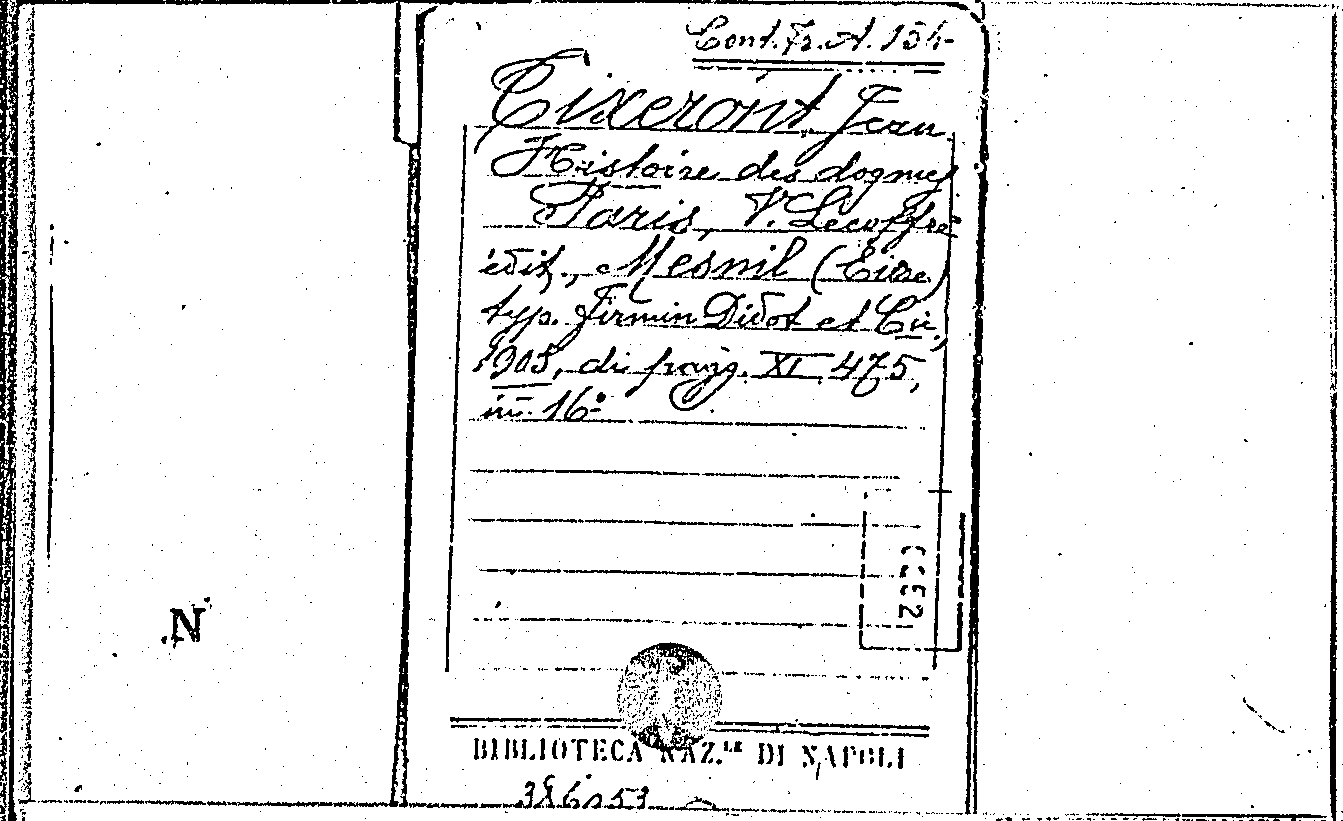 Cont. Fr. A. 154
Tixeront, Jean
Histoire des dogmes
Paris, V. Lecoffre
édit., Mesnil (Eure)
typ. Firmin Didot et Cie,
1905, di pagg. XI, 475,
in 16º
N
BIBLIOTECA NAZ.LE DI NAPOLI